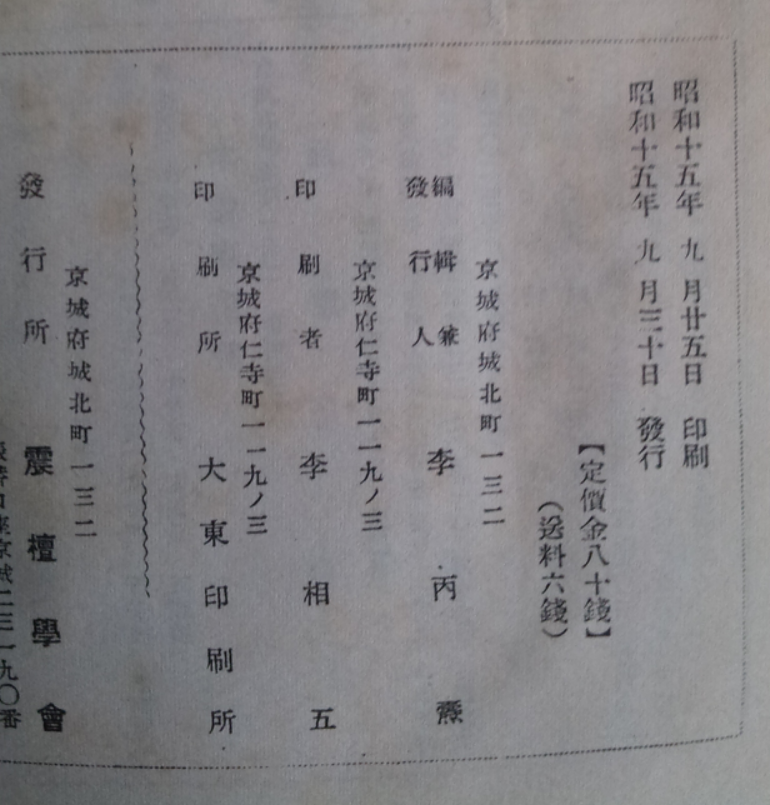 昭和十五年 九月廿五日 印刷
昭和十五年 九月三十日 發行
【定價金八十錢】
(送料六錢)
京城府城北町一三二
編輯兼
發行人 李丙燾
京城府仁寺町一一九ノ三
印刷者 李相五
京城府仁寺町一一九ノ三
印刷所 大東印刷所
京城府城北町一三二
發行所 震檀學會
座京城二三一九〇番